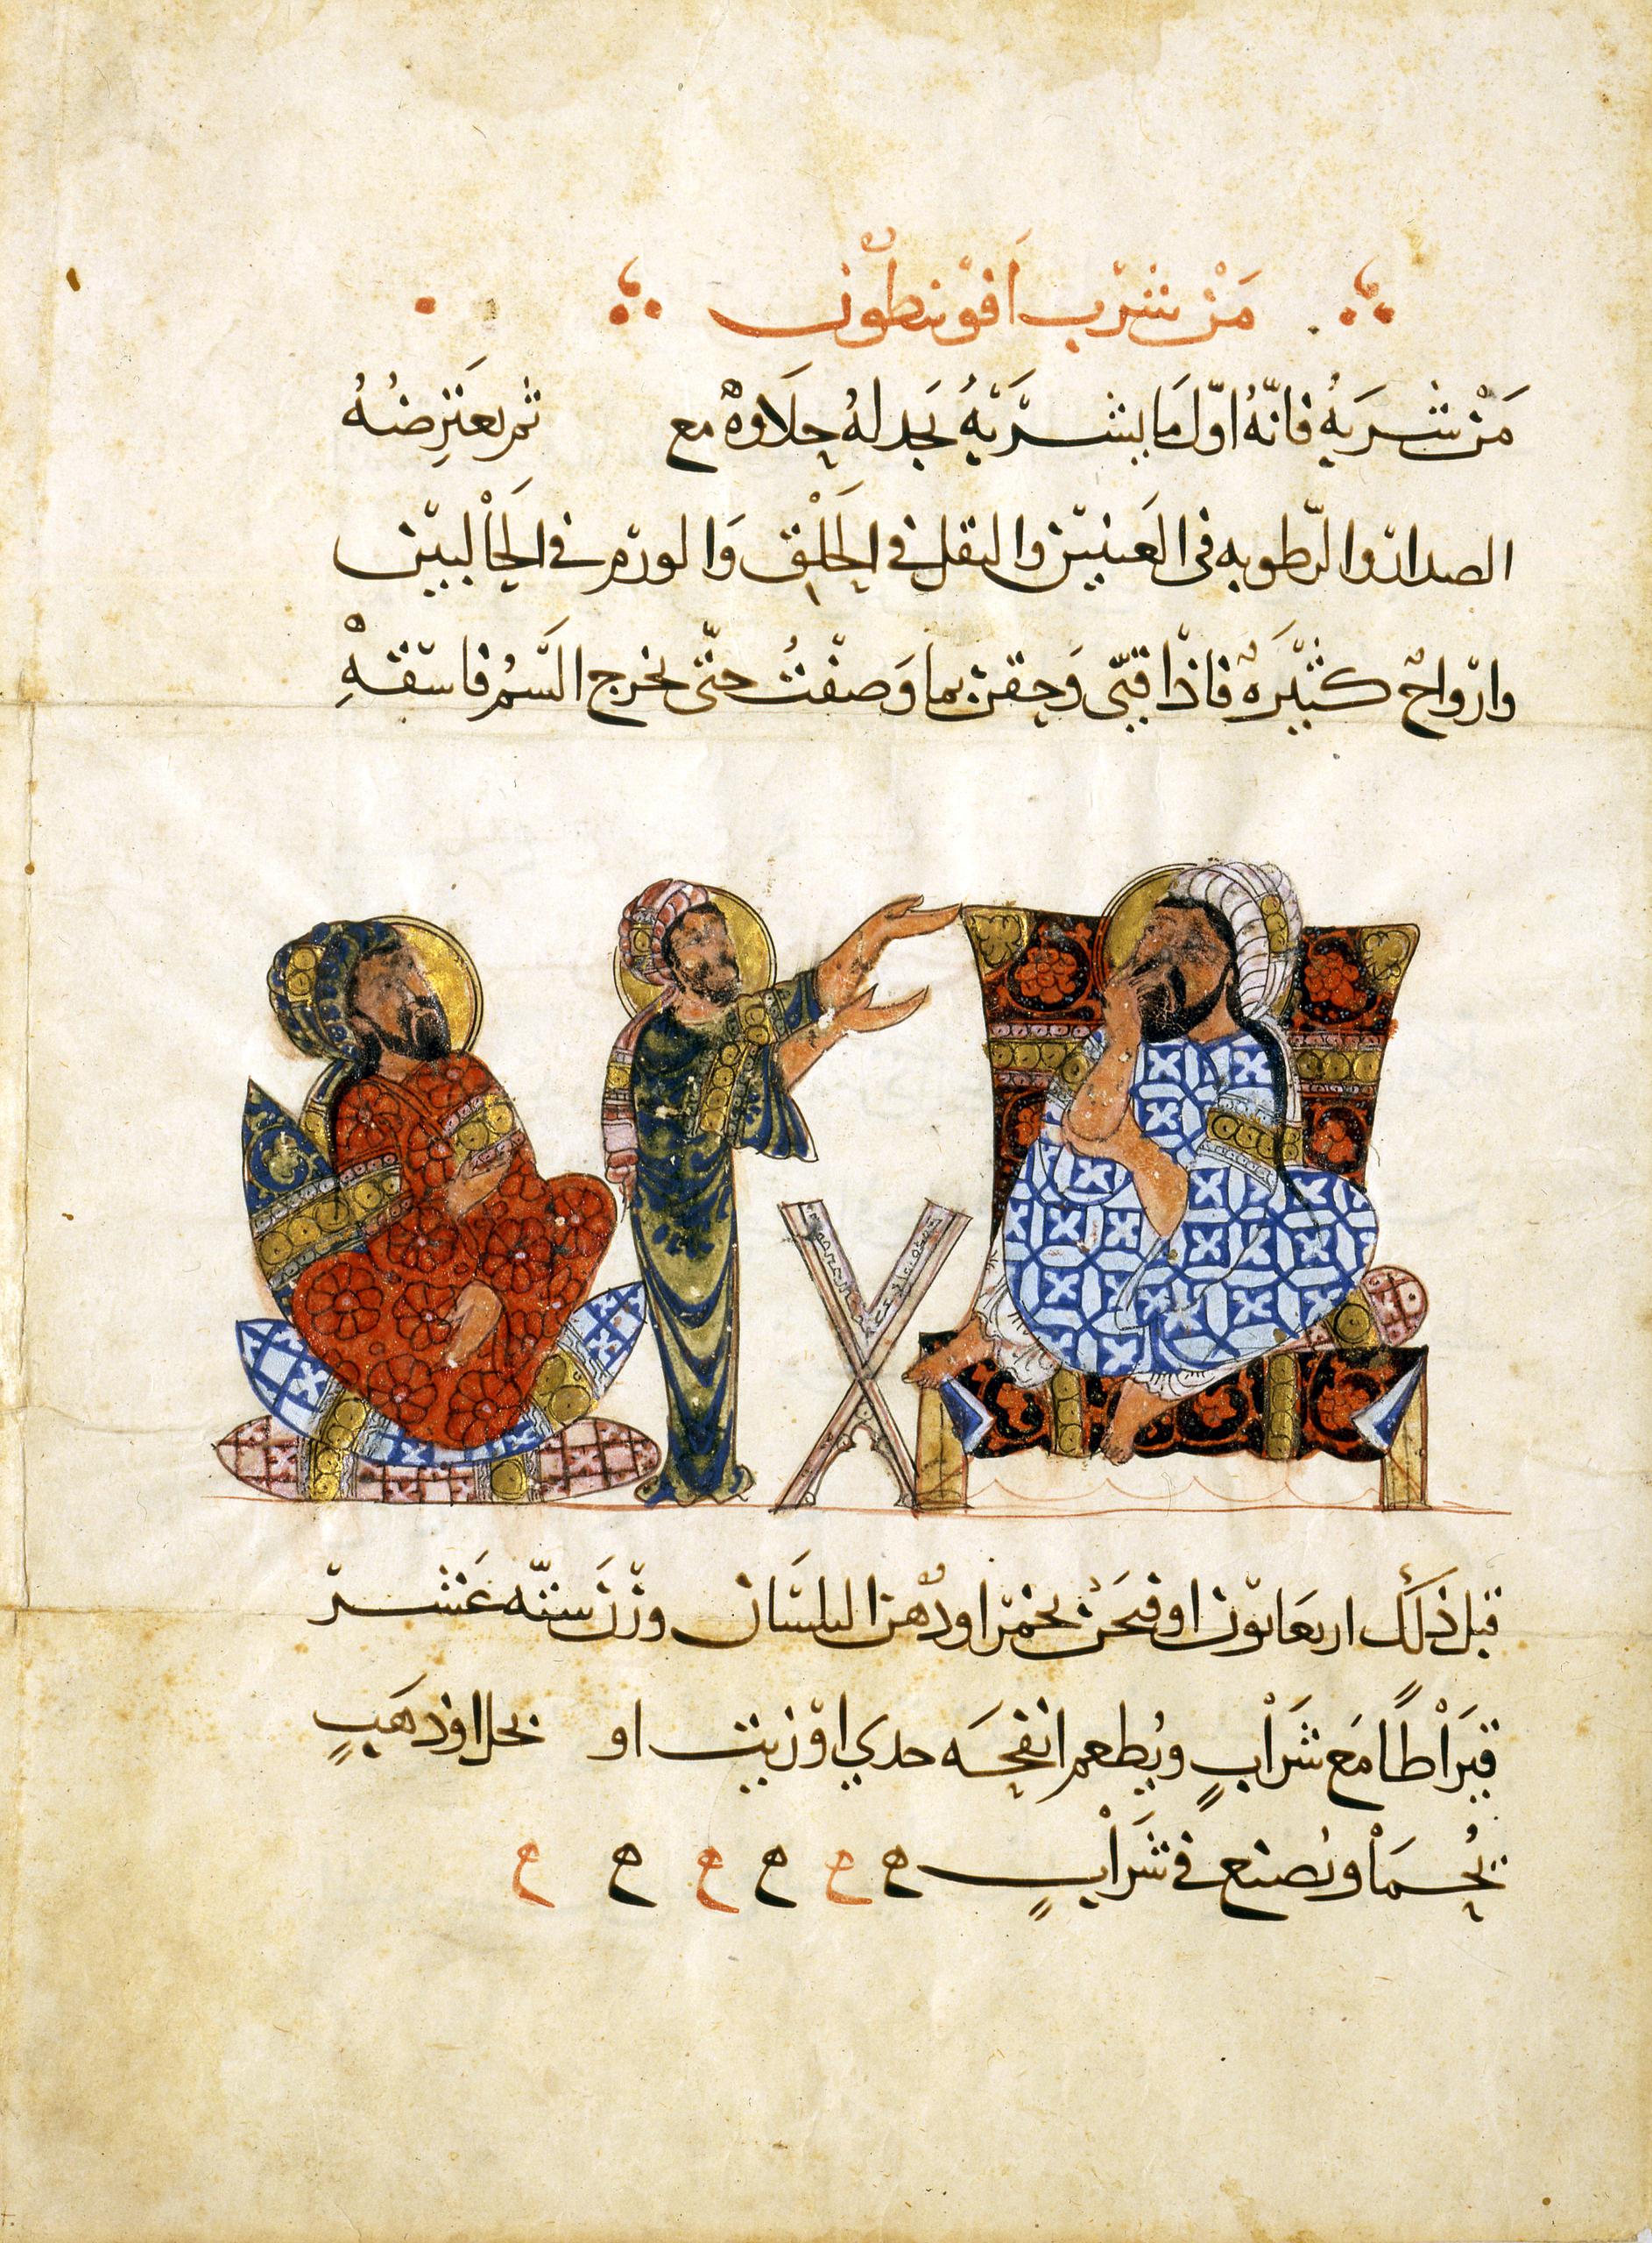 مَنْ شرب اَفوْنيطوْن
مَنْ شَربَهُ فانّهُ اوّل مَا يشربَهُ يَجد لهُ حَلَاوهْ مع ثم يعترضُهُ
الصدار والرّطوبه فى العَينين والثقل فى الحَلْق وَالورْم فى الحَالبين
وارْواحٌ كثيرَهٌ فاذا قيّى وَحقن بما وَصفْتُ حتّى يخرج السَّمُ فاسقهِ
قبل ذَلَك اربعَا او قيحَن بخمْر اودُهْن البلسَان وزنَ ستّه عَشر
قيرَاْطًا مَع شَرَاْبٍ ويُطعم انفحَه جدي اوْ زيت او بخل اوذهَبٍ
يُحمَاْ ويُصنع فى شَرَاْبٍ ح ح ح ح ح ح